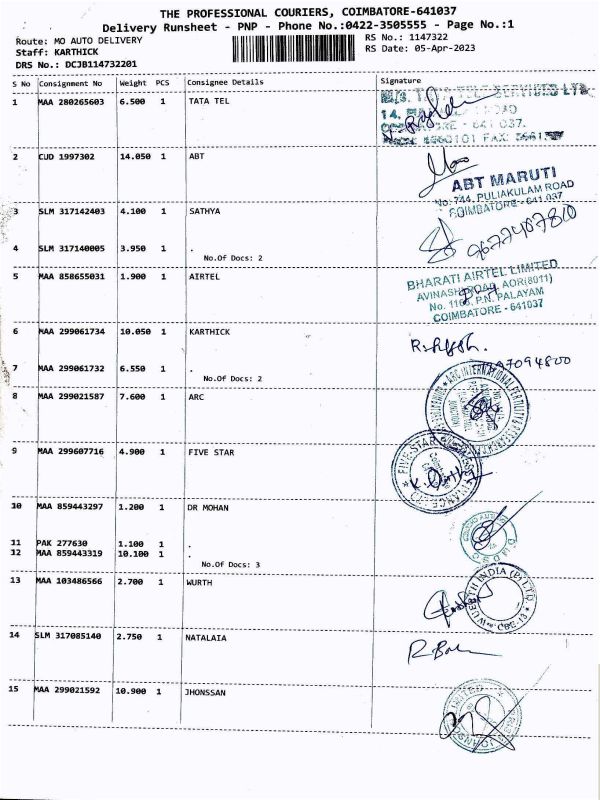 THE PROFESSIONAL COURIERS, COIMBATORE-641037
Delivery Runsheet - PNP - Phone No.:0422-3505555 - Page No.:1
Route: MO AUTO DELIVERY
RS No.: 1147322
Staff: KARTHICK
RS Date: 05-Apr-2023
DRS No.: DCJB114732201
S No Consignment No Weight PCS Consignee Details Signature
1 MAA 280265603 6.500 1 TATA TEL
14,
641 037.
2 CUD 1997302 14.050 1 ABT
ABT MARUTI
No: 744, PULIAKULAM ROAD
COIMBATORE - 641 037
3 SLM 317142403 4.100 1 SATHYA
9677487810
4 SLM 317140005 3.950 1 .
No.Of Docs: 2
5 MAA 858655031 1.900 1 AIRTEL
BHARATI AIRTEL LIMITED
AVINASHI ROAD, AOR(8011)
No. 1168, P.N. PALAYAM
COIMBATORE - 641037
6 MAA 299061734 10.050 1 KARTHICK
7 MAA 299061732 6.550 1 .
No.Of Docs: 2
8 MAA 299021587 7.600 1 ARC
ARC INTERNATIONAL FERTILITY &
9 MAA 299607716 4.900 1 FIVE STAR
FIVE STAR
10 MAA 859443297 1.200 1 DR MOHAN
11 PAK 277630 1.100 1 .
12 MAA 859443319 10.100 1 .
No.Of Docs: 3
13 MAA 103486566 2.700 1 WURTH
WUERTH INDIA (P) LTD
CBE-13
14 SLM 317085140 2.750 1 NATALAIA
15 MAA 299021592 10.900 1 JHONSSAN